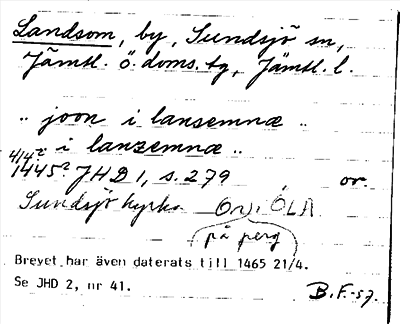 Landsom, by, Sundsjö sn,
Jämtl. ö. doms. tg, Jämtl. l.
.. joon i lansemnæ ..
.. i lanzemnæ ..
4/4 ?
1445? JHD 1, s. 279 or.
Sundsjö kyrka. Ori. ÖLA.
på perg
Brevet har även daterats till 1465 21/4.
Se JHD 2, nr 41. B.F. -57.